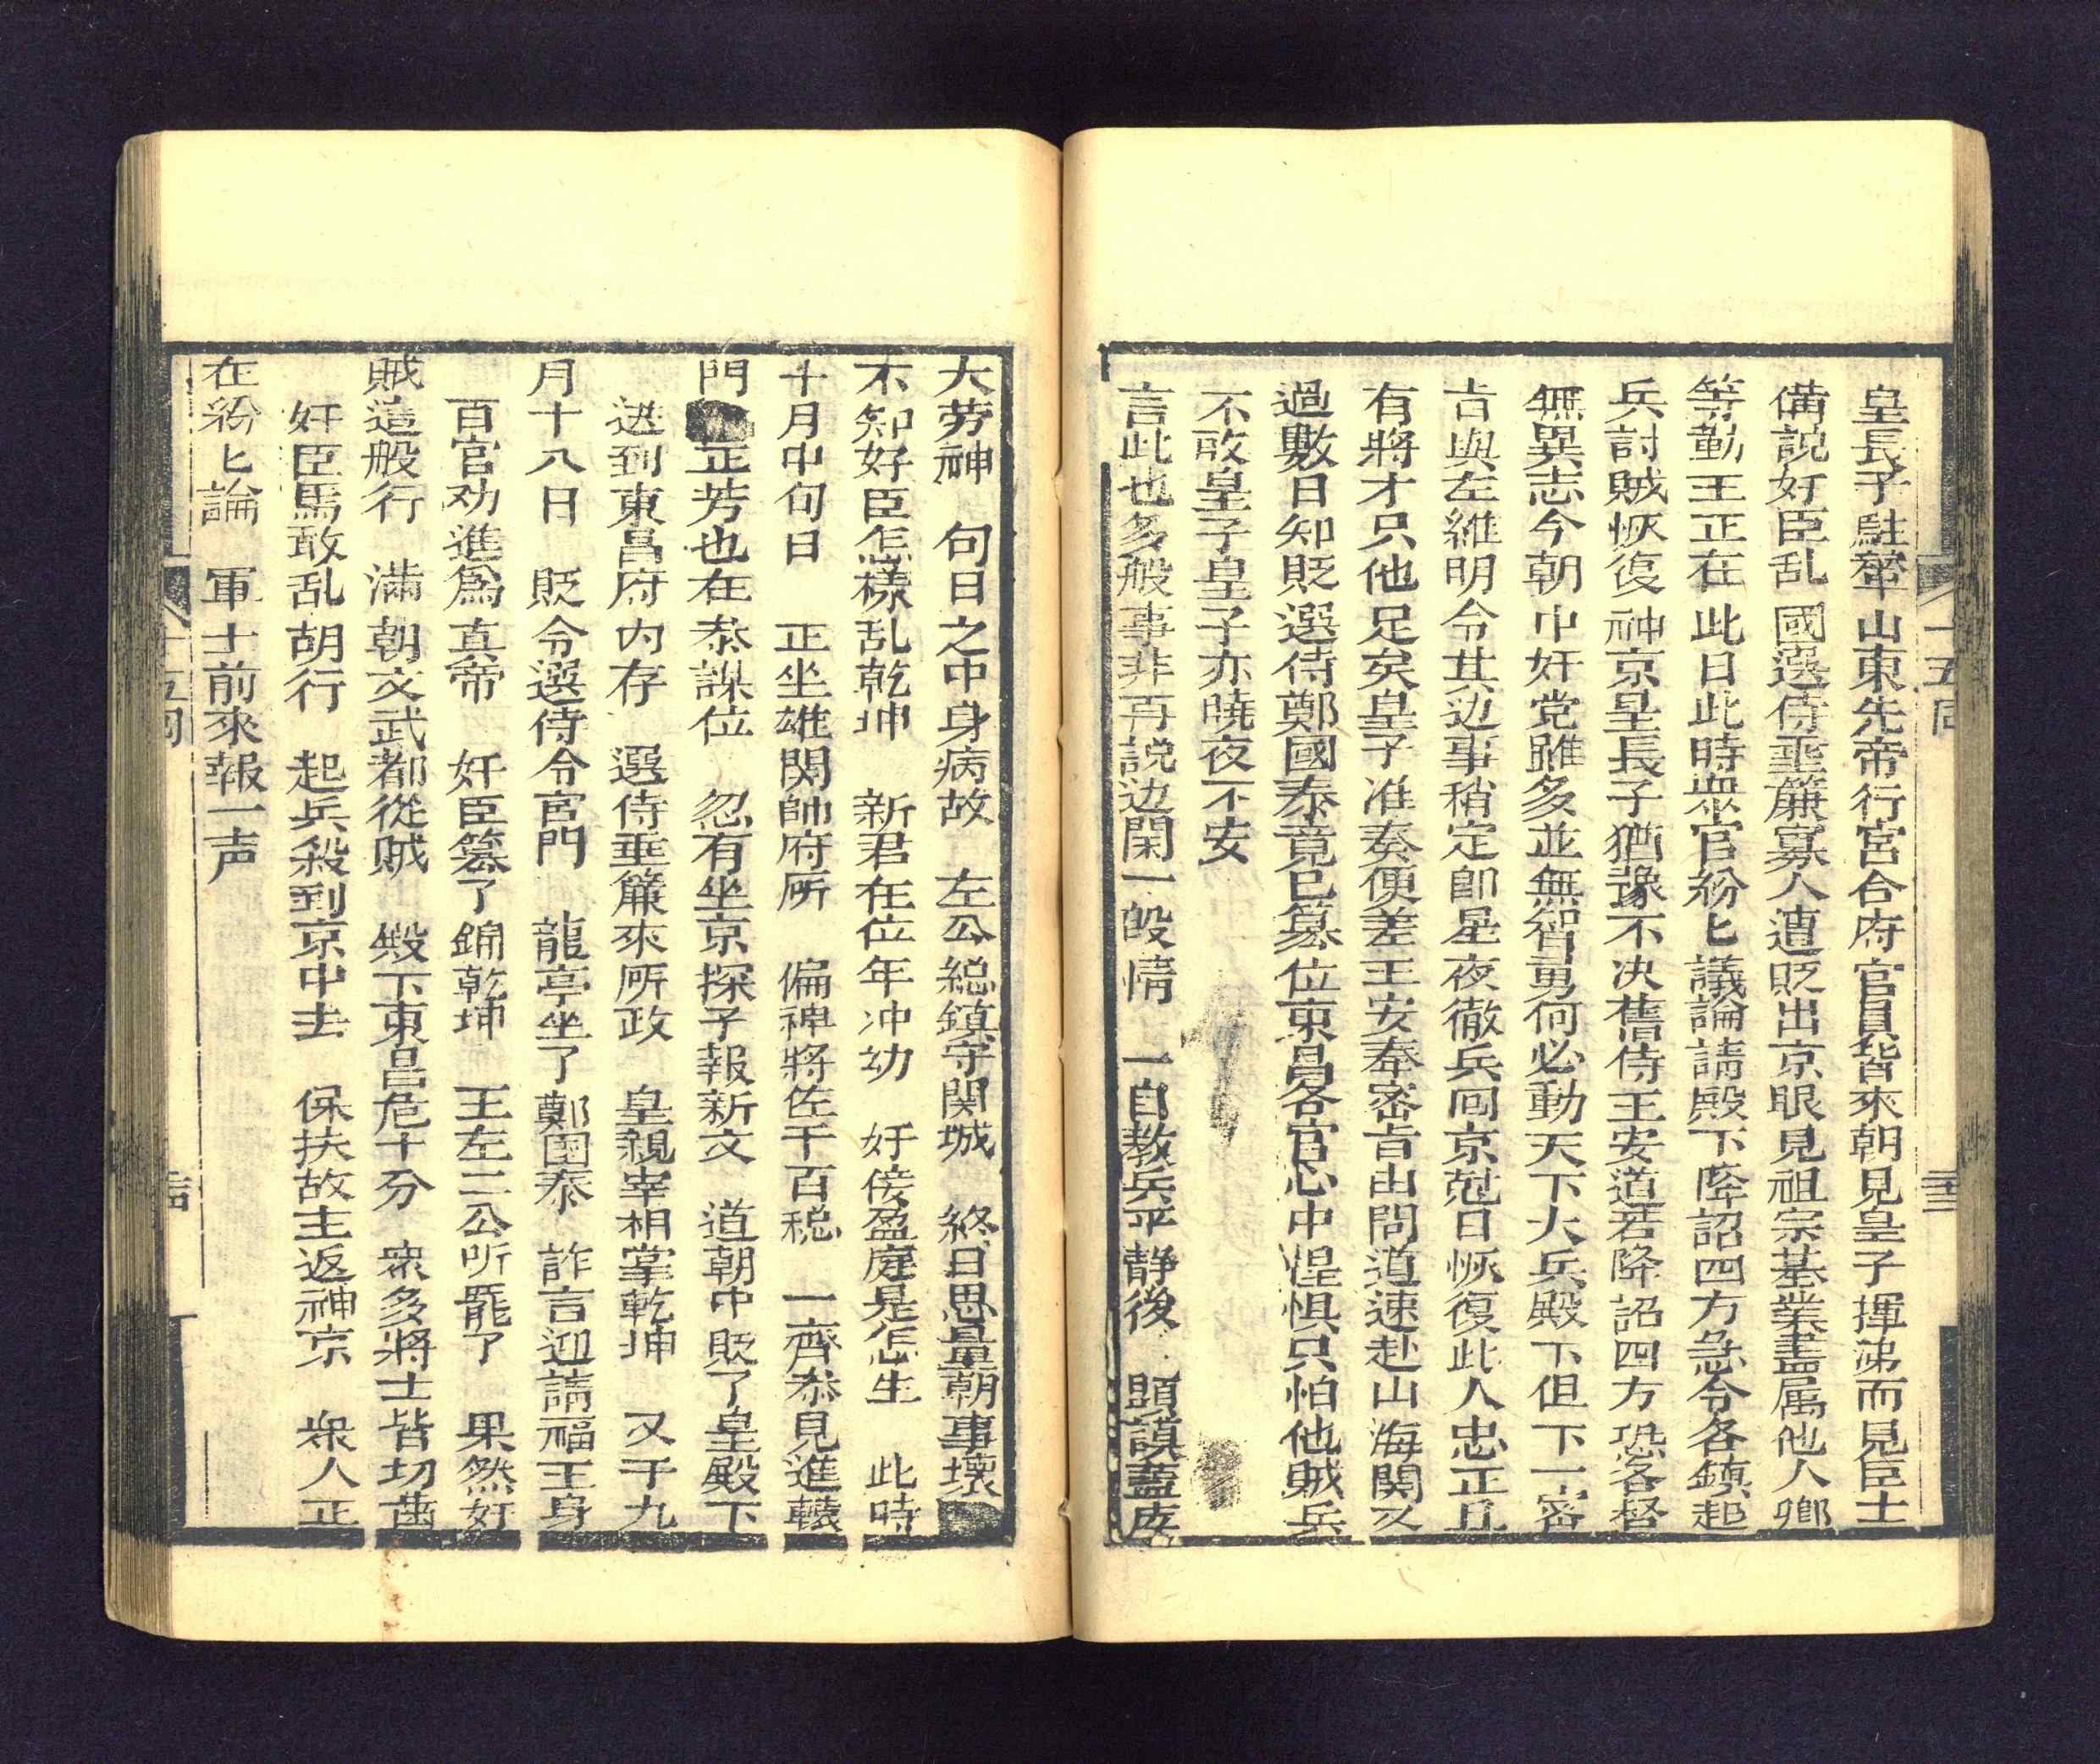 皇長子駐蹕山東先帝行宮合府官員皆來朝見皇子揮涕而見臣士
備説奸臣乱國選侍垂簾寡人遭貶出京眼見祖宗基業盡属他人鄉
等勤王正在此日此時衆官紛匕議論請殿下降詔四方急令各鎮起
兵討賊恢復神京皇長子猶豫不决舊侍王安道若降詔四方恐各督
無異志今朝中奸党雖多並無智勇何必動天下大兵殿下但下一密
旨與左維明令其边事稍定卽星夜徹兵回京尅日恢復此人忠正且
有將才只他足矣皇子准奏便差王安奉密旨由間道速赴山海関又
過數日知貶選侍鄭國泰竟已篡位東昌各官心中惶惧只怕他賊兵
不敢皇子皇子亦曉夜不安
言此也多般事非再説边関一段情　一自教兵平静後　題謨藎度
大劳神　旬日之中身病故　左公総鎮守関城　終日思量朝事壞
不知好臣怎樣乱乾坤　新君在位年冲幼　奸佞盈庭是怎生　此時
十月中旬日　正坐雄関帥府厛　偏裨將佐千百税　一齊叅見進轅
門　正芳也在叅謀位　忽有坐京探子報新文　道朝中貶了皇殿下
送到東昌府内存　選侍垂簾來厛政　皇親宰相掌乾坤　又于九
月十八日　貶令選侍令宮門　龍亭坐了鄭囯泰　詐言迎請福王身
百官劝進為真帝　奸臣篡了錦乾坤　王左二公听罷了　果然奸
賊這般行　滿朝文武都從賊　殿下東昌危十分　衆多將士皆切齒
奸臣焉敢乱胡行　起兵殺到京中去　保扶故主返神京　衆人正
在紛匕論　軍士前來報一声
十五回